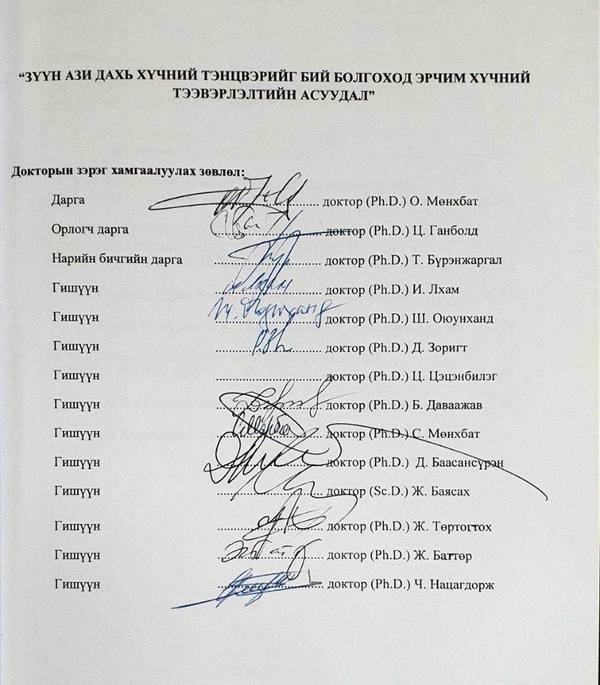 “ЗҮҮН АЗИ ДАХЬ ХҮЧНИЙ ТЭНЦВЭРИЙГ БИЙ БОЛГОХОД ЭРЧИМ ХҮЧНИЙ
ТЭЭВЭРЛЭЛТИЙН АСУУДАЛ”
Докторын зэрэг хамгаалуулах зөвлөл:
Дарга доктор (Ph.D.) О. Мөнхбат
Орлогч дарга доктор (Ph.D.) Ц. Ганболд
Нарийн бичгийн дарга доктор (Ph.D.) Т. Бүрэнжаргал
Гишүүн доктор (Ph.D.) И. Лхам
Гишүүн доктор (Ph.D.) Ш. Оюунханд
Гишүүн доктор (Ph.D.) Д. Зоригт
Гишүүн доктор (Ph.D.) Ц. Цэцэнбилэг
Гишүүн доктор (Ph.D.) Б. Даваажав
Гишүүн доктор (Ph.D.) С. Мөнхбат
Гишүүн доктор (Ph.D.) Д. Баасансүрэн
Гишүүн доктор (Sc.D.) Ж. Баясах
Гишүүн доктор (Ph.D.) Ж. Төртогтох
Гишүүн доктор (Ph.D.) Ж. Баттөр
Гишүүн доктор (Ph.D.) Ч. Нацагдорж